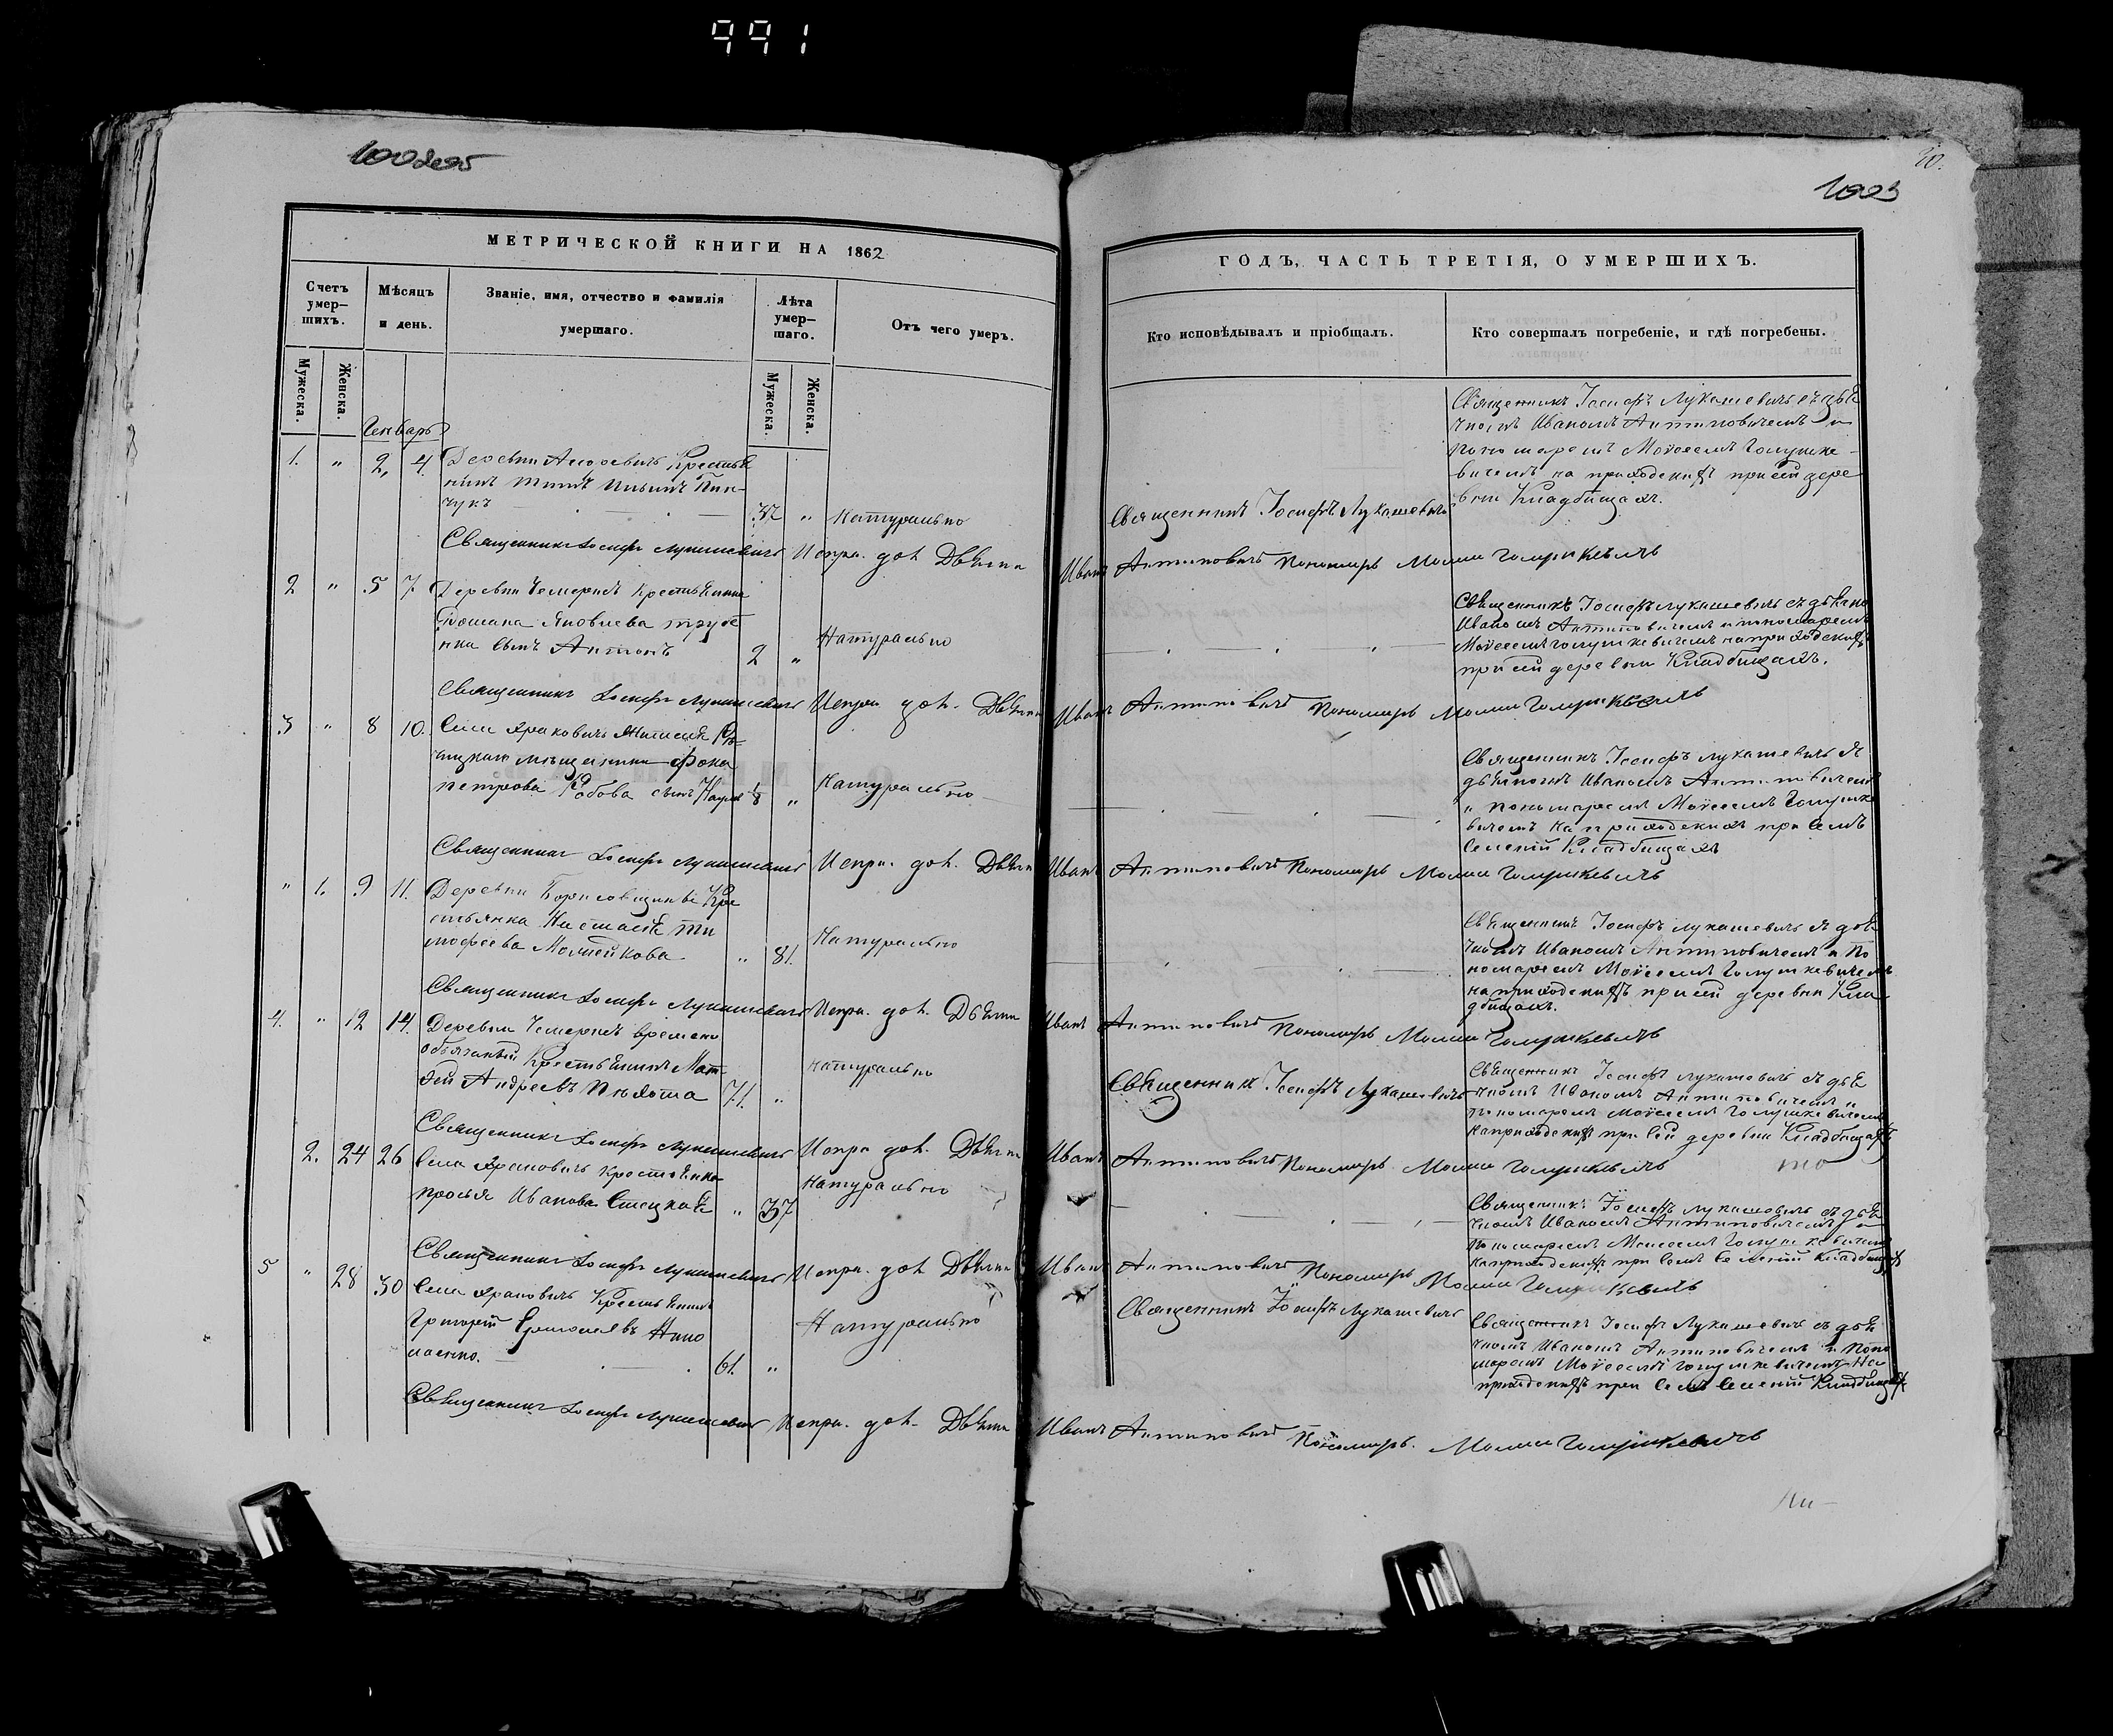 991
30.
1003
МЕТРИЧЕСКОЙ КНИГИ НА 1862
Счетъ умер— шихъ.
Мѣсяцъ и день.
Званіе, имя, отчество и фамилія
умершаго.
Лѣта умер— шаго.
Отъ чего умеръ.
Мужеска.
Женска.
Мужеска.
Женска.
Генварь
1. " 2, 4. Деревни Крестья
нинъ Ильинъ Пин-
чукъ 37 " Натурально
Священникъ Іосифъ Лукашевичъ Испра. дол. Дьячка
2 " 5 7 Деревни Чемеринъ Крестьянина
Яковлева
сынъ Антонъ 2 " Натурально
Священникъ Іосифъ Лукашевичъ Испра. дол. Дьячка
3 " 8 10. Села Храковичъ Жителя
мѣщанина Фока
Петрова сынъ 1/8 " Натурально
Священникъ Іосифъ Лукашевичъ Испра. дол. Дьячка
" 1. 9 11. Деревни Борисовщины Кре
стьянка Настасія Ти
мофеева " 81. Натурально
Священникъ Іосифъ Лукашевичъ Испра. дол. Дьячка
4. " 12 14. Деревни Чемеринъ временно
обязанный Крестьянинъ Мат
вей Андреевъ 71. " Натурально
Священникъ Іосифъ Лукашевичъ Испра дол. Дьячка
2. 24 26 Села Храковичъ Крестьянка
Иванова " 37 Натурально
Священникъ Іосифъ Лукашевичъ Испра. дол Дьячка
5 " 28 30 Села Храковичъ Крестьянинъ
Григорій
61. " Натурально
Священникъ Іосифъ Лукашевичъ Испра. дол. Дьячка
ГОДЪ, ЧАСТЬ ТРЕТІЯ, О УМЕРШИХЪ.
Кто исповѣдывалъ и пріобщалъ.
Кто совершалъ погребеніе, и гдѣ погребены.
Священникъ Іосифъ Лукашевичъ съ дья
чкомъ Иваномъ Антиповичемъ и
пономаремъ Моисеемъ Голушке-
вичемъ на приходскихъ при сей дере
вни Кладбищахъ.
Священникъ Іосифъ Лукашевичъ
Иванъ Антиповичъ Пономарь Моисей Голушкевичъ
Священникъ Іосифъ Лукашевичъ съ дьячко
Иваномъ Антиповичемъ и пономаремъ
Моисеемъ Голушкевичемъ на приходскихъ
при сей деревни Кладбищахъ.
Иванъ Антиповичъ Пономарь Моисей Голушкевичъ
Священникъ Іосифъ Лукашевичъ съ
дьячкомъ Иваномъ Антиповичемъ
и пономаремъ Моисеемъ Голушке
вичемъ на приходскихъ при семъ
селеніи Кладбищахъ
Иванъ Антиповичъ Пономарь Моисей Голушкевичъ
Священникъ Іосифъ Лукашевичъ съ дья
чкомъ Иваномъ Антиповичемъ и По
номаремъ Моисеемъ Голушкевичемъ
на приходскихъ при сей деревни Кла
дбищахъ.
Иванъ Антиповичъ Пономарь Моисей Голушкевичъ
Священникъ Іосифъ Лукашевичъ
Священникъ Іосифъ Лукашевичъ съ дья
чкомъ Иваномъ Антиповичемъ и
пономаремъ Моисеемъ Голушкевичемъ
на приходскихъ при сей деревни Кладбищахъ
Иванъ Антиповичъ Пономарь Моисей Голушкевичъ
Священникъ Іосифъ Лукашевичъ съ дья
чкомъ Иваномъ Антиповичемъ и
Пономаремъ Моисеемъ Голушкевичемъ
на приходскихъ при семъ селеніи Кладбищахъ
Иванъ Антиповичъ Пономарь Моисей Голушкевичъ
Священникъ Іосифъ Лукашевичъ
Священникъ Іосифъ Лукашевичъ съ дья
чкомъ Иваномъ Антиповичемъ и Поно
маремъ Моисеемъ Голушкевичемъ На
приходскихъ при семъ селеніи Кладбищахъ
Иванъ Антиповичъ Пономарь. Моисей Голушкевичъ